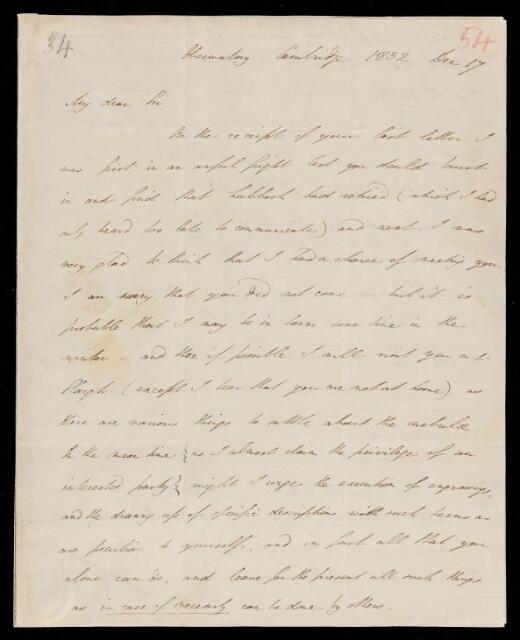 34
54
Observatory Cambridge 1832 Dec 17
My dear Sir
On the receipt of your last letter I
was first in an awful fright lest you should
in and find that Lubbock had retired (which I had
only heard too late to communicate) and next I was
very glad to think that I had a chance of meeting you.
I am sorry that you did not come – but it is
probable that I may be in town some time in the
winter – and then if possible I will visit you at
Slough (except I hear that you are not at home) as
there are various things to settle about the nebulæ.
In the mean time {as I almost claim the privilege of an
interested party} might I urge the execution of engravings,
and the drawing up of specific descriptions with such items as
are peculiar to yourself, and in fact all that you
alone can do, and leave for the present all such things
as in case of necessity can be done by others.